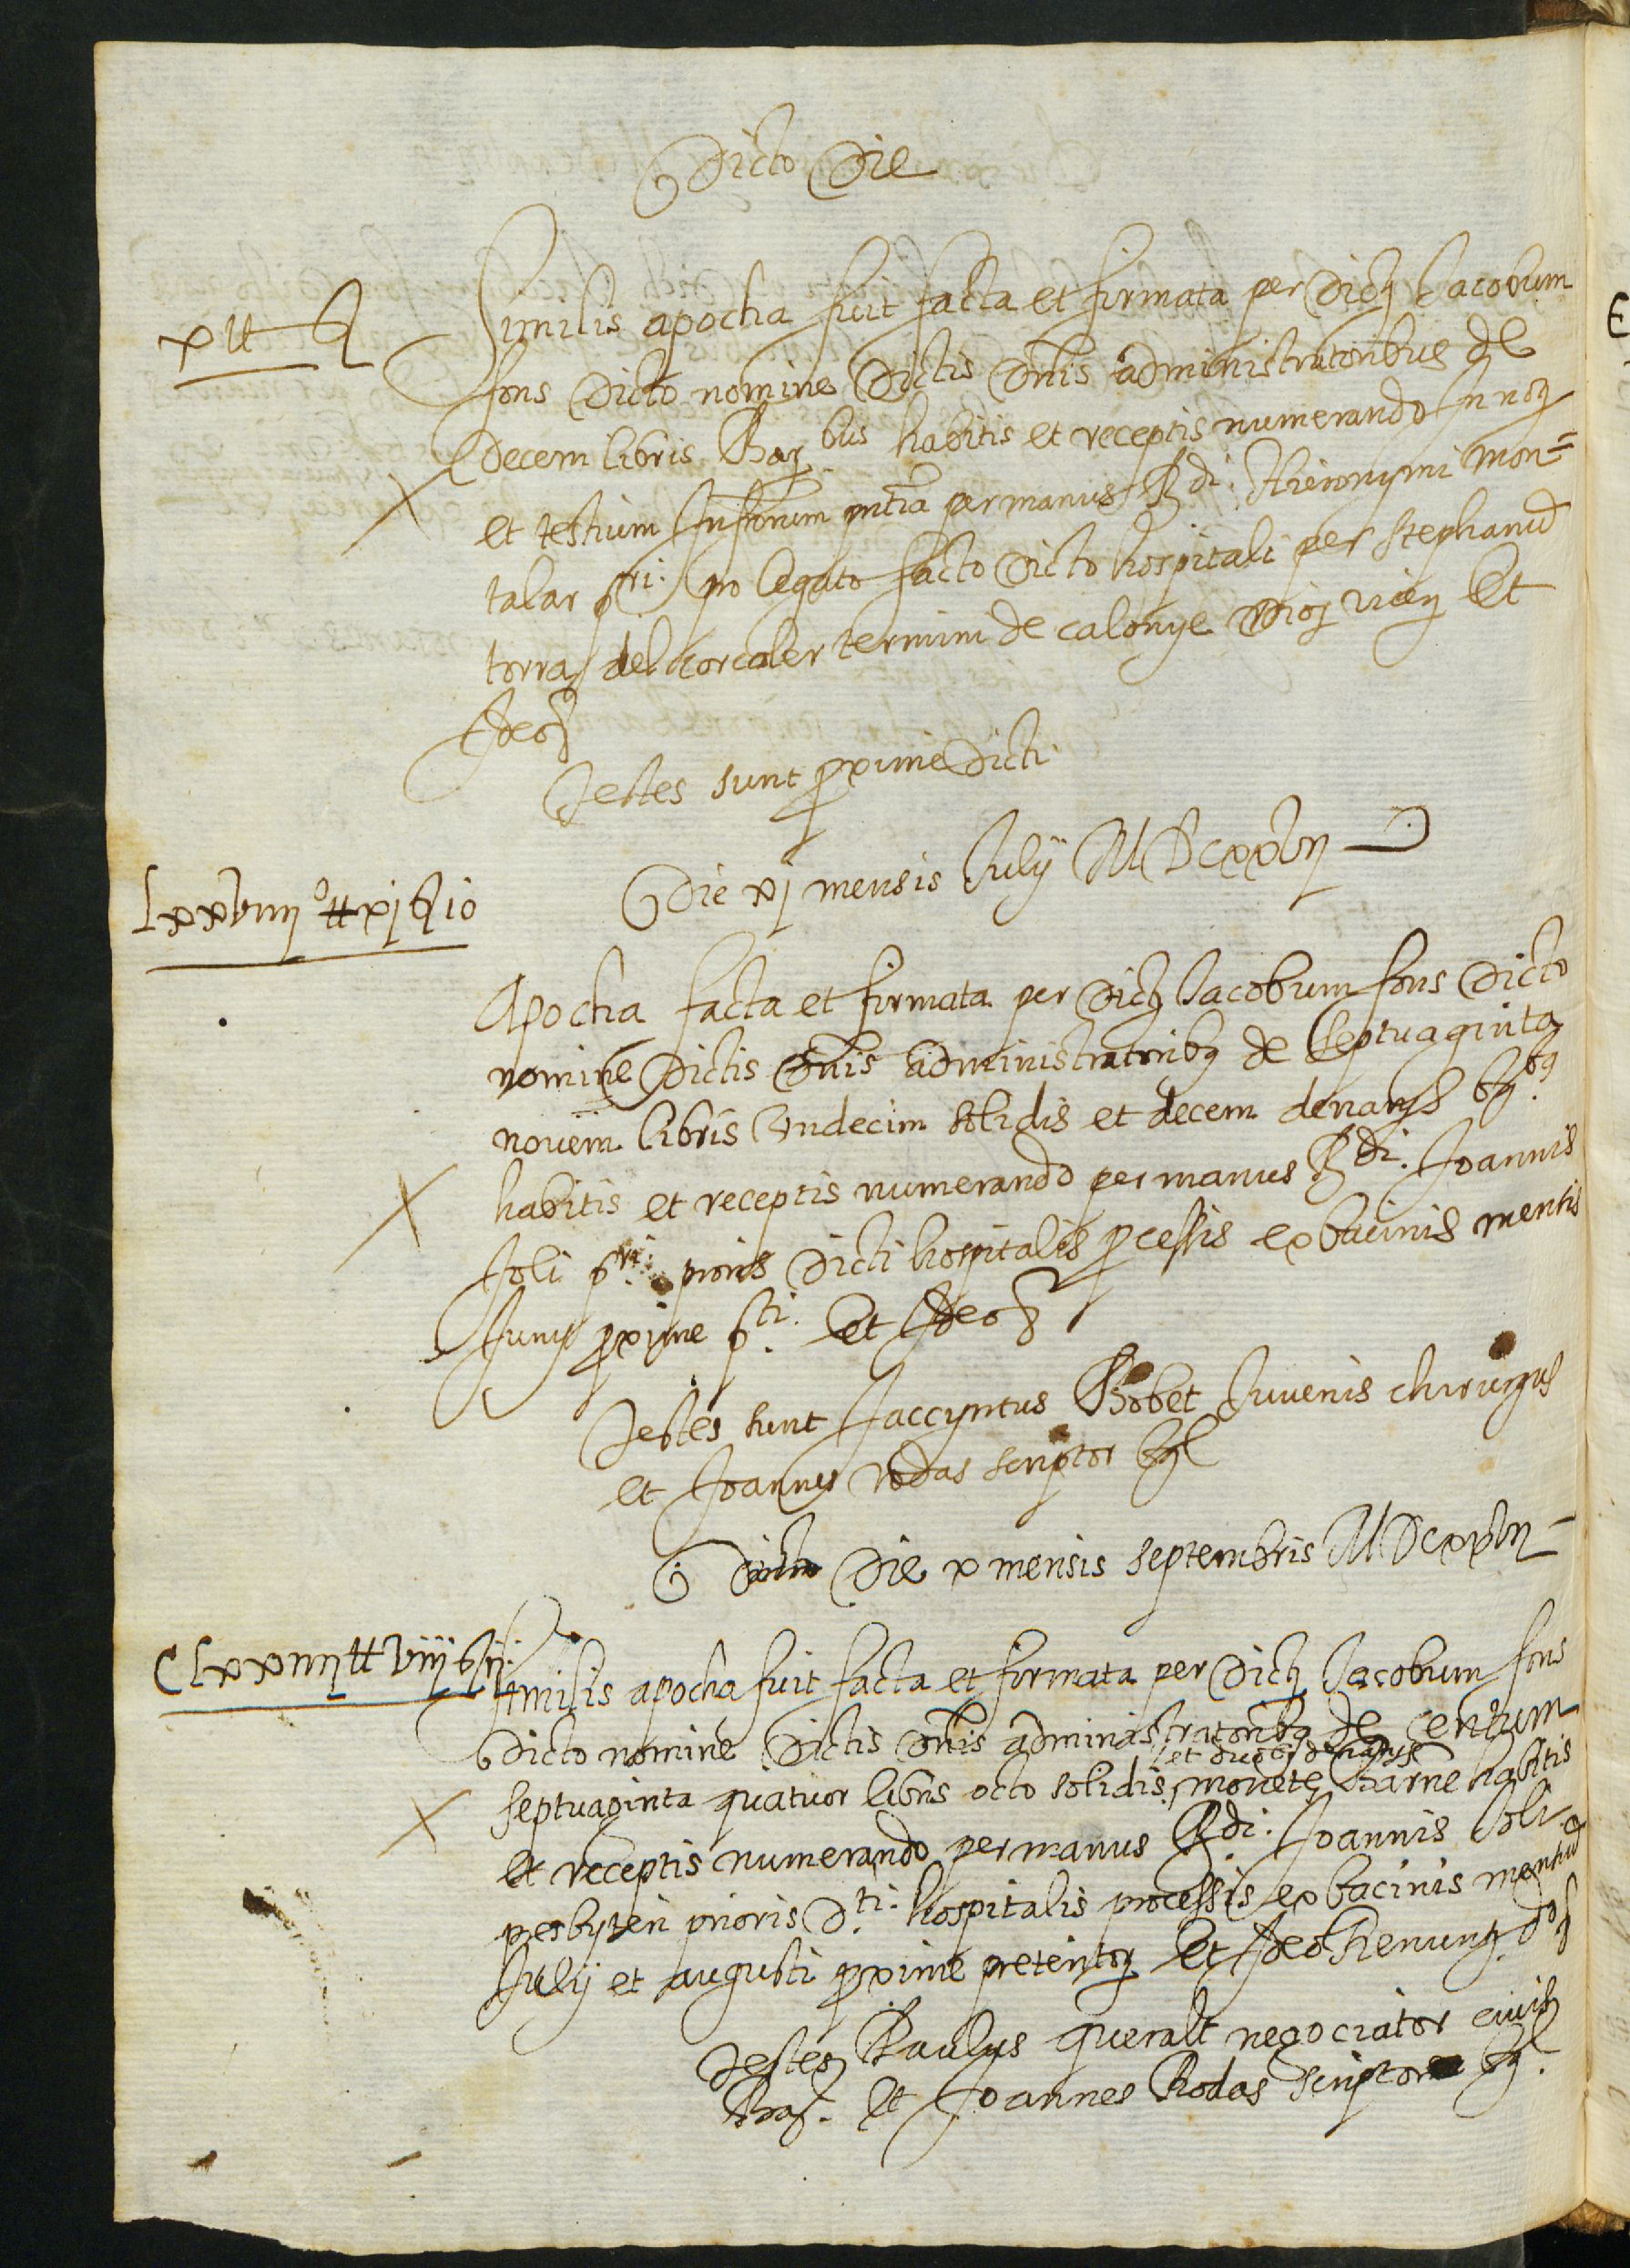 Dicto Die
x ₶ ß
Similis apocha fuit facta et firmata per dictũ Jacobum
fons dicto nomine dictis dñis administratoribus de
decem libris Bar.bus habitis et receptis numerando In noỹ
et testium Infrorum pñtia per manus Rdi. Hieronymi mon=
talar pri. pro legato facto dicto hospitali per stephanũ
torra del corcoler termini de calonge dioỹ vicen Et
Ideo &
Testes sunt proxime dicti
Die xj mensis July MDCxxvij
Lxxviiij ₶ xj ß io
Apocha facta et firmata per dictũ Jacobum fons dicto
nomine dictis dñis administratoribỹ de septuaginta
novem libris Undecim solidis et decem denarys bỹ.bỹ
habitis et receptis numerando per manus Rdi. Joannis
Joli pri. prioris dicti hospitalis processis ex bacinis mensis
Juny proxime pti. Et Ideo &
Testes sunt Jaccyntus Bobet Juvenis chirurgus
et Joannes rodas scriptor bỹ
Die x mensis septembris MDCxxvij
CLxxiiij ₶ viij ß ij
Similis apocha fuit facta et firmata per dictũ Jacobum fons
dicto nomine dictis dñis administratoribỹ de centum
et duobỹ denarys
septuaginta quatuor libris octo solidis monete Barne habitis
et receptis numerando per manus Rdi. Joannis Joli
presbyteri prioris dti. hospitalis processis ex bacinis mensiũ
July et augusti proxime preteritoỹ Et Ideo Renunỹ
Testes Paulus queralt negociator civis
Bar. et Joannes Rodas scriptor bỹ.